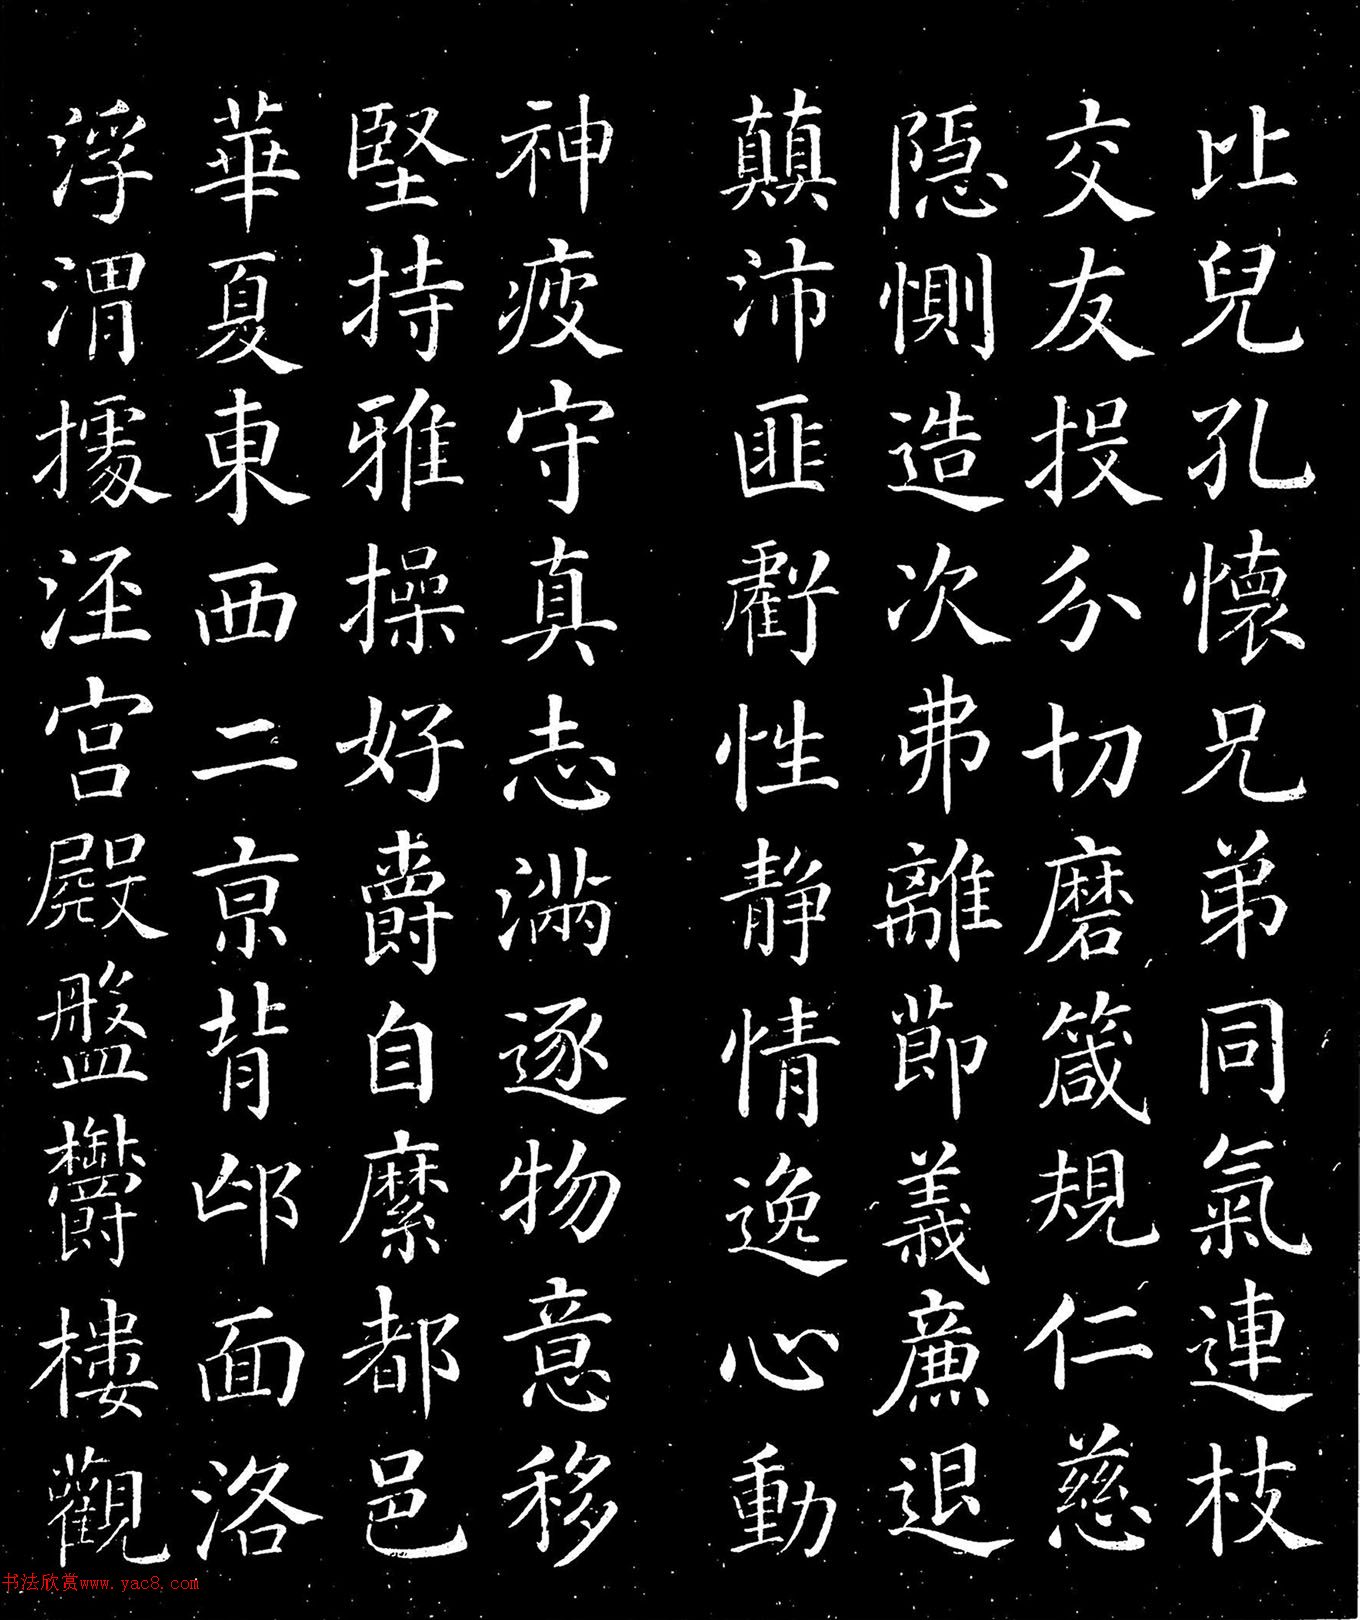 比兒孔懷兄弟同氣連枝
交友投分切磨箴規仁慈
隱惻造次弗離節義廉退
顛沛匪虧性静情逸心動
神疲守真志滿逐物意移
堅持雅操好爵自縻都邑
華夏東西二京背邙面洛
浮渭據涇宫殿盤鬱樓觀
书法欣赏www.yac8.com